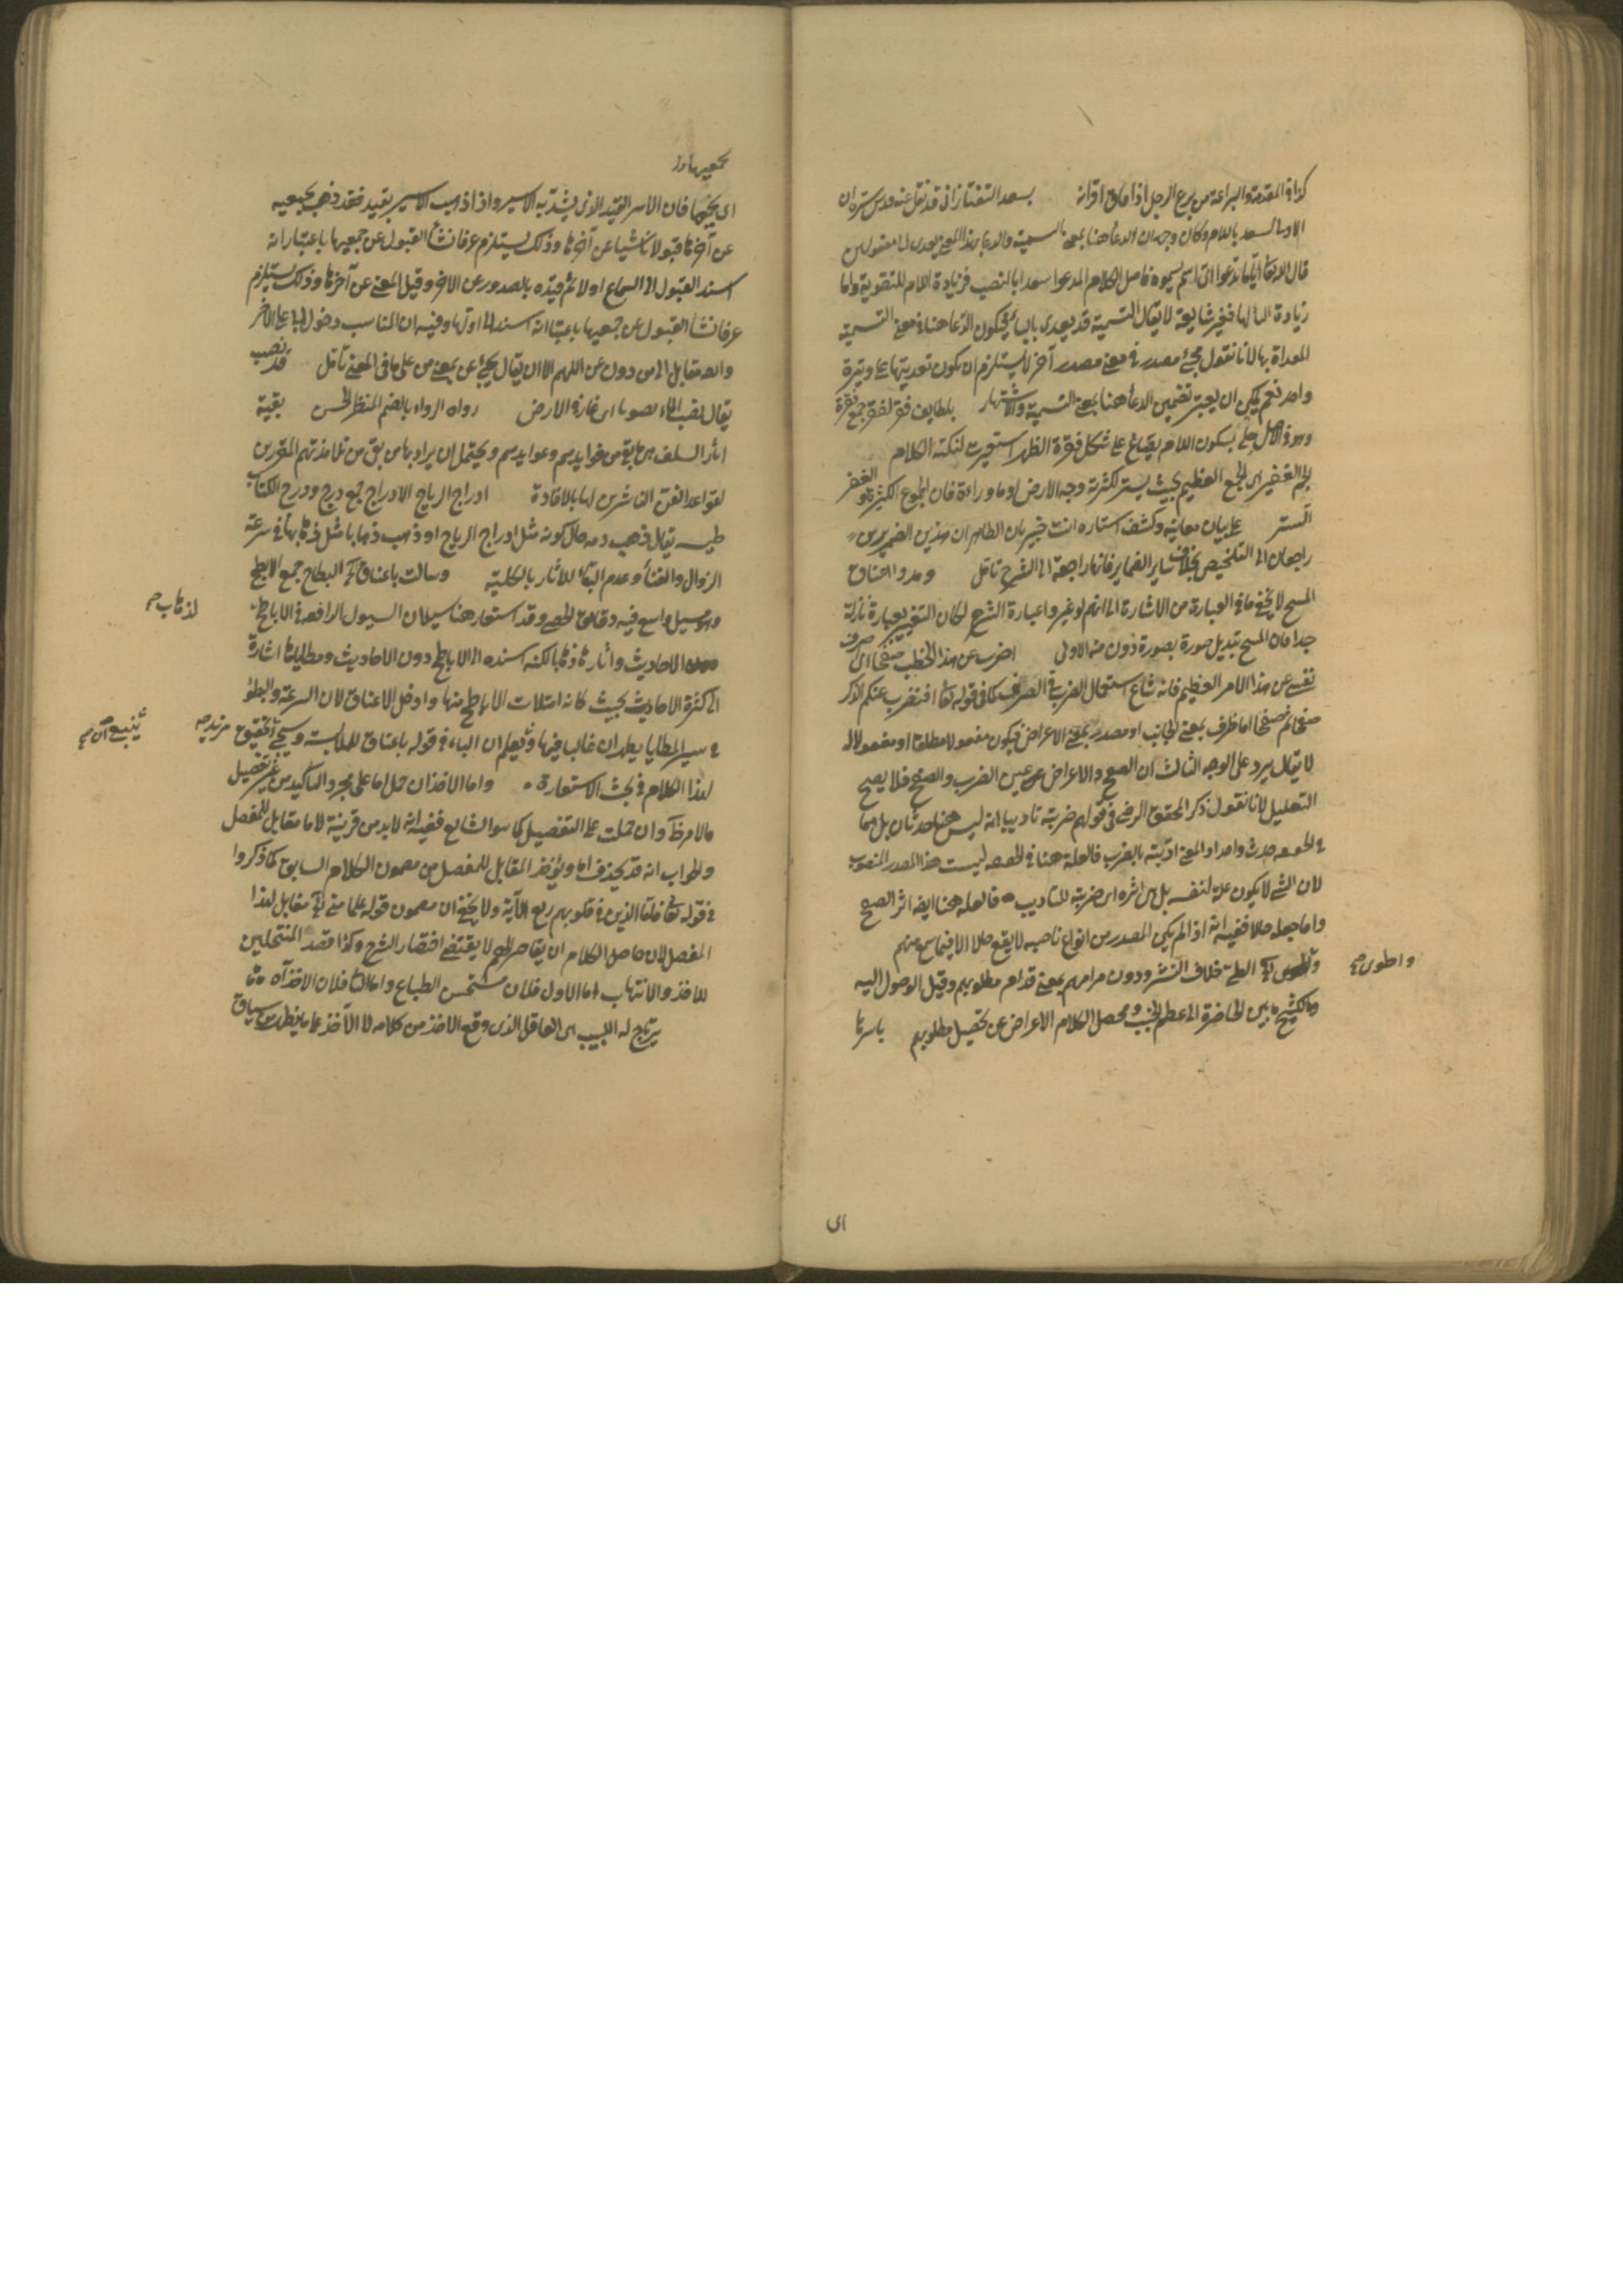 كذا في المقدمة والبراعة من برع الرجل اذا فاق اقرانه بسعد التفتازاني قد نقل عنه قدس سره ان
الاولى السعد باللام وكان وجهه ان الدعا ههنا بمعنى التسمية والدعا بهذا المعنى يعدى الى مفعولين
قال الله تعالى اياما تدعوا اى اسم تسموه فاصل الكلام المدعو سعدا بالنصب فزيادة اللام للتقوية واما
زيادة البا لها فغير شايعة لا يقال التسمية قد يعدى بالباء فيكون الدعا ههنا في معنى التسمية
المعداة بها لانا نقول مجئ مصدر في معنى مصدر آخر لا يستلزم ان يكون تعديتها على وتيرة
واحدة نعم يمكن ان يعتبر تضمين الدعا ههنا بمعنى التسمية والاشتهار بلطايف فقر الفقر جمع فقرة
وهو في الاصل حلى بسكون اللام يصاغ على شكل فقرة الظهر استعيرت لنكتة الكلام
الجم الغفير اى الجمع العظيم بحيث يستر لكثرته وجه الارض او ما وراءه فان الجموع الكثيرة الغفر
الستر على بيان معانيه وكشف استاره انت خبير بان الظاهر ان هذين الضميرين
راجعان الى التلخيص بخلاف ساير الضماير فانها راجعة الى الشرح تأمل ومدوا اعناق
المسخ لا يخفى ما في العبارة من الاشارة الى انهم لو غيروا عبارة الشرح لكان التغيير بعبارة نازلة
جدا فان المسخ تبديل صورة بصورة دون من الاولى اضرب عن هذا الخطب صفحا اى صرف
نفسى عن هذا الامر العظيم فانه شاع استعمال الضرب في الصرف كما في قوله تعالى افنضرب عنكم الذكر
صفحا ثم صفحا اما ظرف بمعنى الجانب او مصدر بمعنى الاعراض فيكون مفعولا مطلقا او مفعولا له
لا يقال يرد على الوجه الثالث ان الصفح والاعراض عين الضرب والصفح فلا يصح
التعليل لانا نقول ذكر المحقق الرضى في قولهم ضربته تاديبا انه ليس ههنا حدثان بل هما
في الحقيقة حدث واحد اذ المعنى ادبته بالضرب فالعلة ههنا في الحقيقة ليست هذا المصدر المنصوب
لان الشئ لا يكون علة لنفسه بل هى اثره اى ضربته للتاديب فالعلة ههنا ايضا اثر الصفح
واما جعله حالا ففيه انه اذا لم يكن المصدر من انواع ناصبه لا يقع حالا الا فيما سمع منهم
واطوى صح
الطى خلاف النشر ودون مرامهم بمعنى قدام مطلوبهم وقيل الوصول اليه
والكشح ما بين الخاصرة الى اعظم الجنب ومحصل الكلام الاعراض عن تحصيل مطلوبهم باسرها
اى
جميعها
اى بجميعها فان الاسر القيد الذى يشد به الاسير واذا ذهب الاسير بقيده فقد ذهب بجميعه
عن آخرها قبولا ناشيا عن آخرها وذلك يستلزم عرفا نشأ القبول عن جميعها باعتبار انه
اسند القبول الى السماع اولا ثم قيده بالصدور عن الاخر وقيل المعنى عن آخرها وذلك يستلزم
عرفا نشأ القبول عن جميعها باعتبار انه اسند الى اولها وفيه ان المناسب دخول الى على الاخر
وانه مقابل الى من دون عن اللهم الا ان يقال يجئ عن بمعنى من على ما في المغنى تأمل قد نضب
يقال نضب الماء نضوبا اى غار في الارض رواه الرواء بالضم المنظر الحسن بقية
آثار السلف هى ما بقى من فوايدهم وعوايدهم ويحتمل ان يراد بها من بقى من تلامذتهم المقررين
لقواعد الفن الناشرين لها بالافادة ادراج الرياح الادراج جمع درج ودرج الكتاب
طيه يقال ذهب دمه حال كونه مثل ادراج الرياح او ذهب ذهابا مثل ذهابها في سرعة
الزوال والفناء وعدم البقاء للاثار بالكلية وسالت باعناق آه البطاح جمع الابطح
وهو مسيل واسع فيه دقاق الحصى وقد استعار ههنا سيلان السيول الرافعة في الاباطح
لذهاب صح
الاحاديث وآثارها ذهابا لكنه اسنده الى الاباطح دون الاحاديث ومطاياها اشارة
الى كثرة الاحاديث بحيث كانه امتلات الاباطح منها وادخل الاعناق لان السرعة والبطؤ
في سير المطايا يظهران غالبا فيها وبعلم ان الباء في قوله باعناق للملابسة وسيجئ تحقيق مزيد صح
لهذا الكلام في بحث الاستعارة واما الاخذ ان حمل اما على مجرد التأكيد من غير تفصيل
فالامر ظ وان حملت على التفصيل كما هو الشايع ففيه انه لابد من قرينة لاما مقابل للمفصل
والجواب انه قد يحذف اما ويؤخذ المقابل للمفصل من مضمون الكلام السابق كما ذكروا
في قوله تعالى فاما الذين في قلوبهم زيغ الآية ولا يخفى ان مضمون قوله علما منى آه مقابل لهذا
المفصل لان حاصل الكلام ان تقاصر الهمم لا يقتضى اختصار الشرح وكذا قصد المنتحلين
للاخذ والانتهاب اما الاول فلان مستحسن الطباع واما الثانى فلان الاخذ آه
يرتاح له اللبيب اى العاقل الذى وقع الاخذ من كلامه لا الآخذ على ما يظهر من سياق